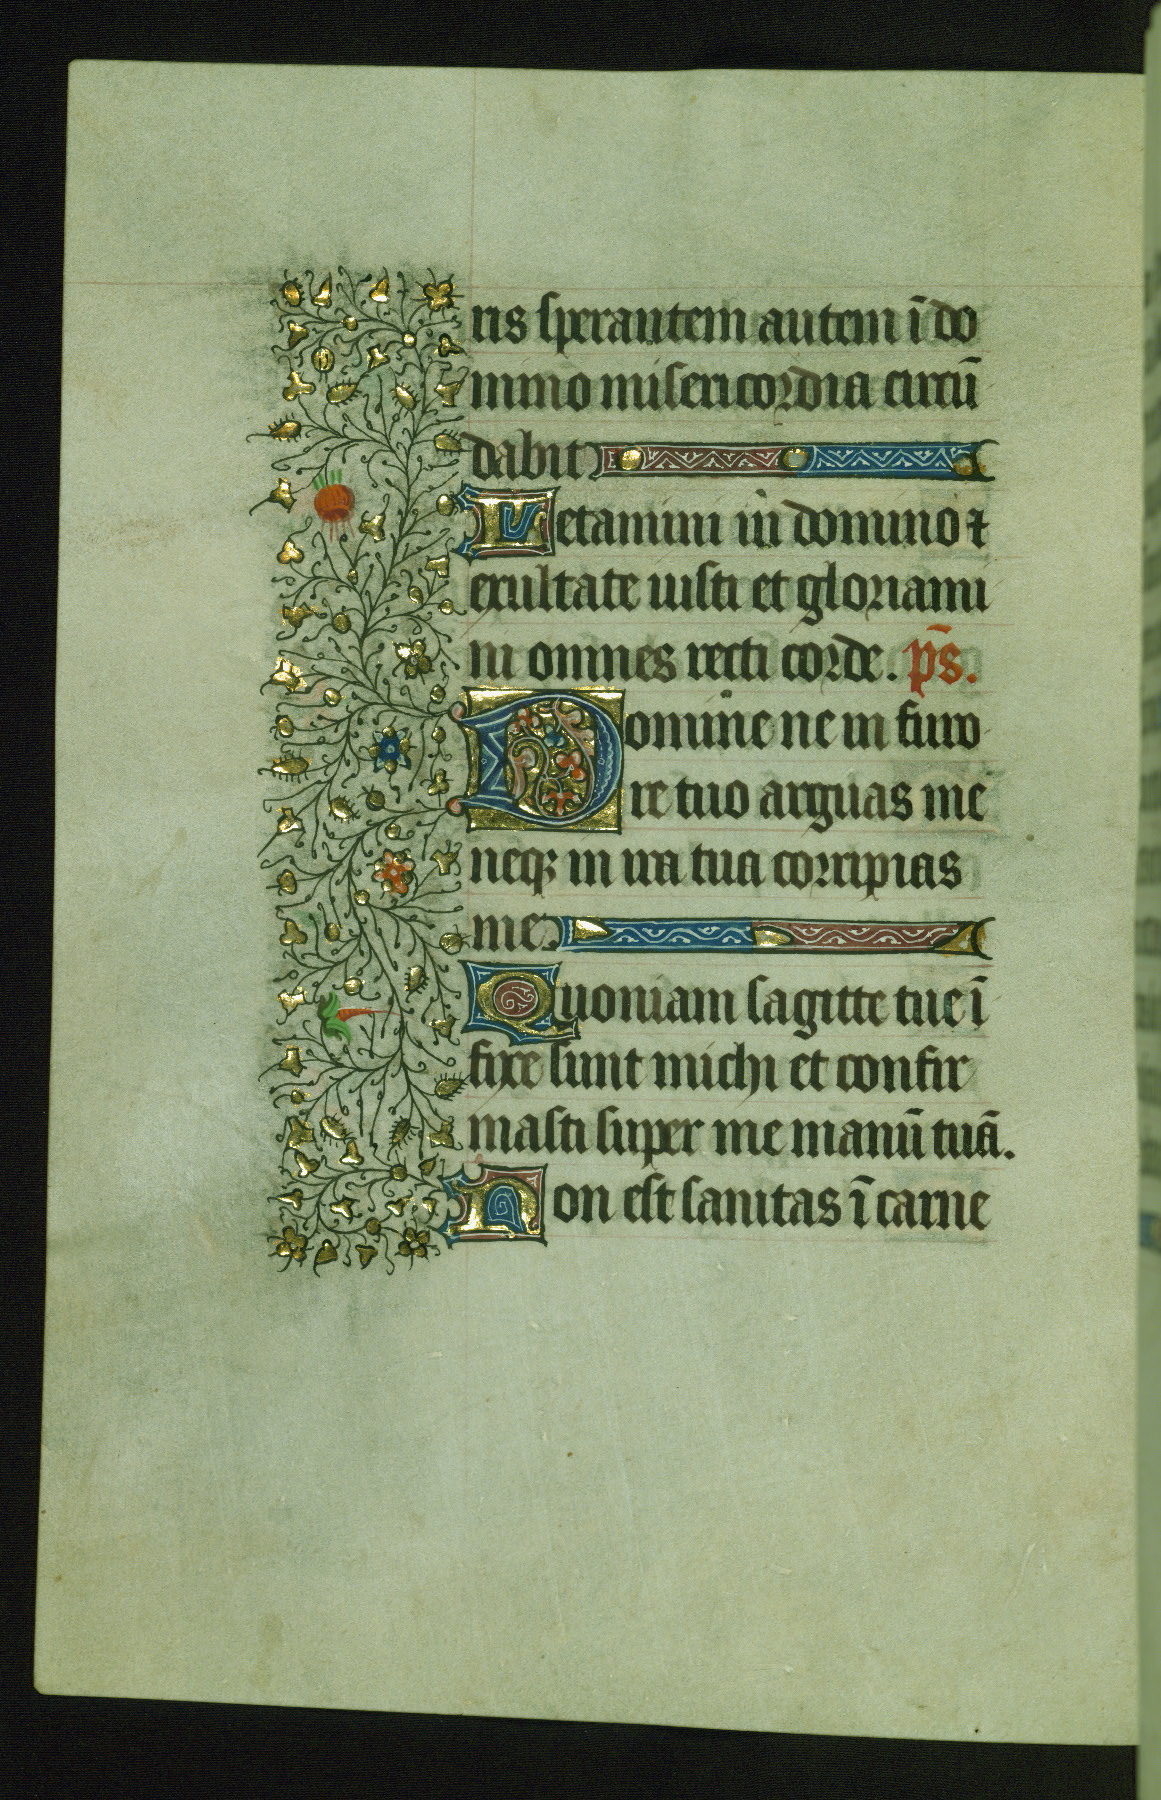 ris sperantem autem ī do
mino misericordia circū
dabit
Letamini in domino ⁊
exultate iusti et gloriami
ni omnes recti corde. p̄s.
Domine ne in furo
re tuo arguas me
neqꝫ in ira tua corripias
me
Quoniam sagitte tue ī
fixe sunt michi et confir
masti super me manū tuā.
Non est sanitas ī carne